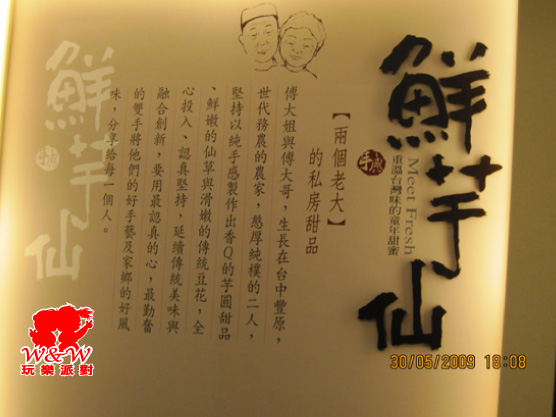 鮮芋仙
手感
Meet Fresh
重溫台灣味的童年甜蜜
【兩個老大】
的私房甜品
傅大姐與傅大哥，生長在台中豐原，
世代務農的農家，憨厚純樸的二人，
堅持以純手感製作出香Q的芋圓甜品
、鮮嫩的仙草與滑嫩的傳統豆花，全
心投入、認真堅持，延續傳統美味與
融合創新，要用最認真的心，最勤奮
的雙手將他們的好手藝及家鄉的好風
味，分享給每一個人。
鮮芋仙
手感
W&W
玩樂派對
30/05/2009 18:08